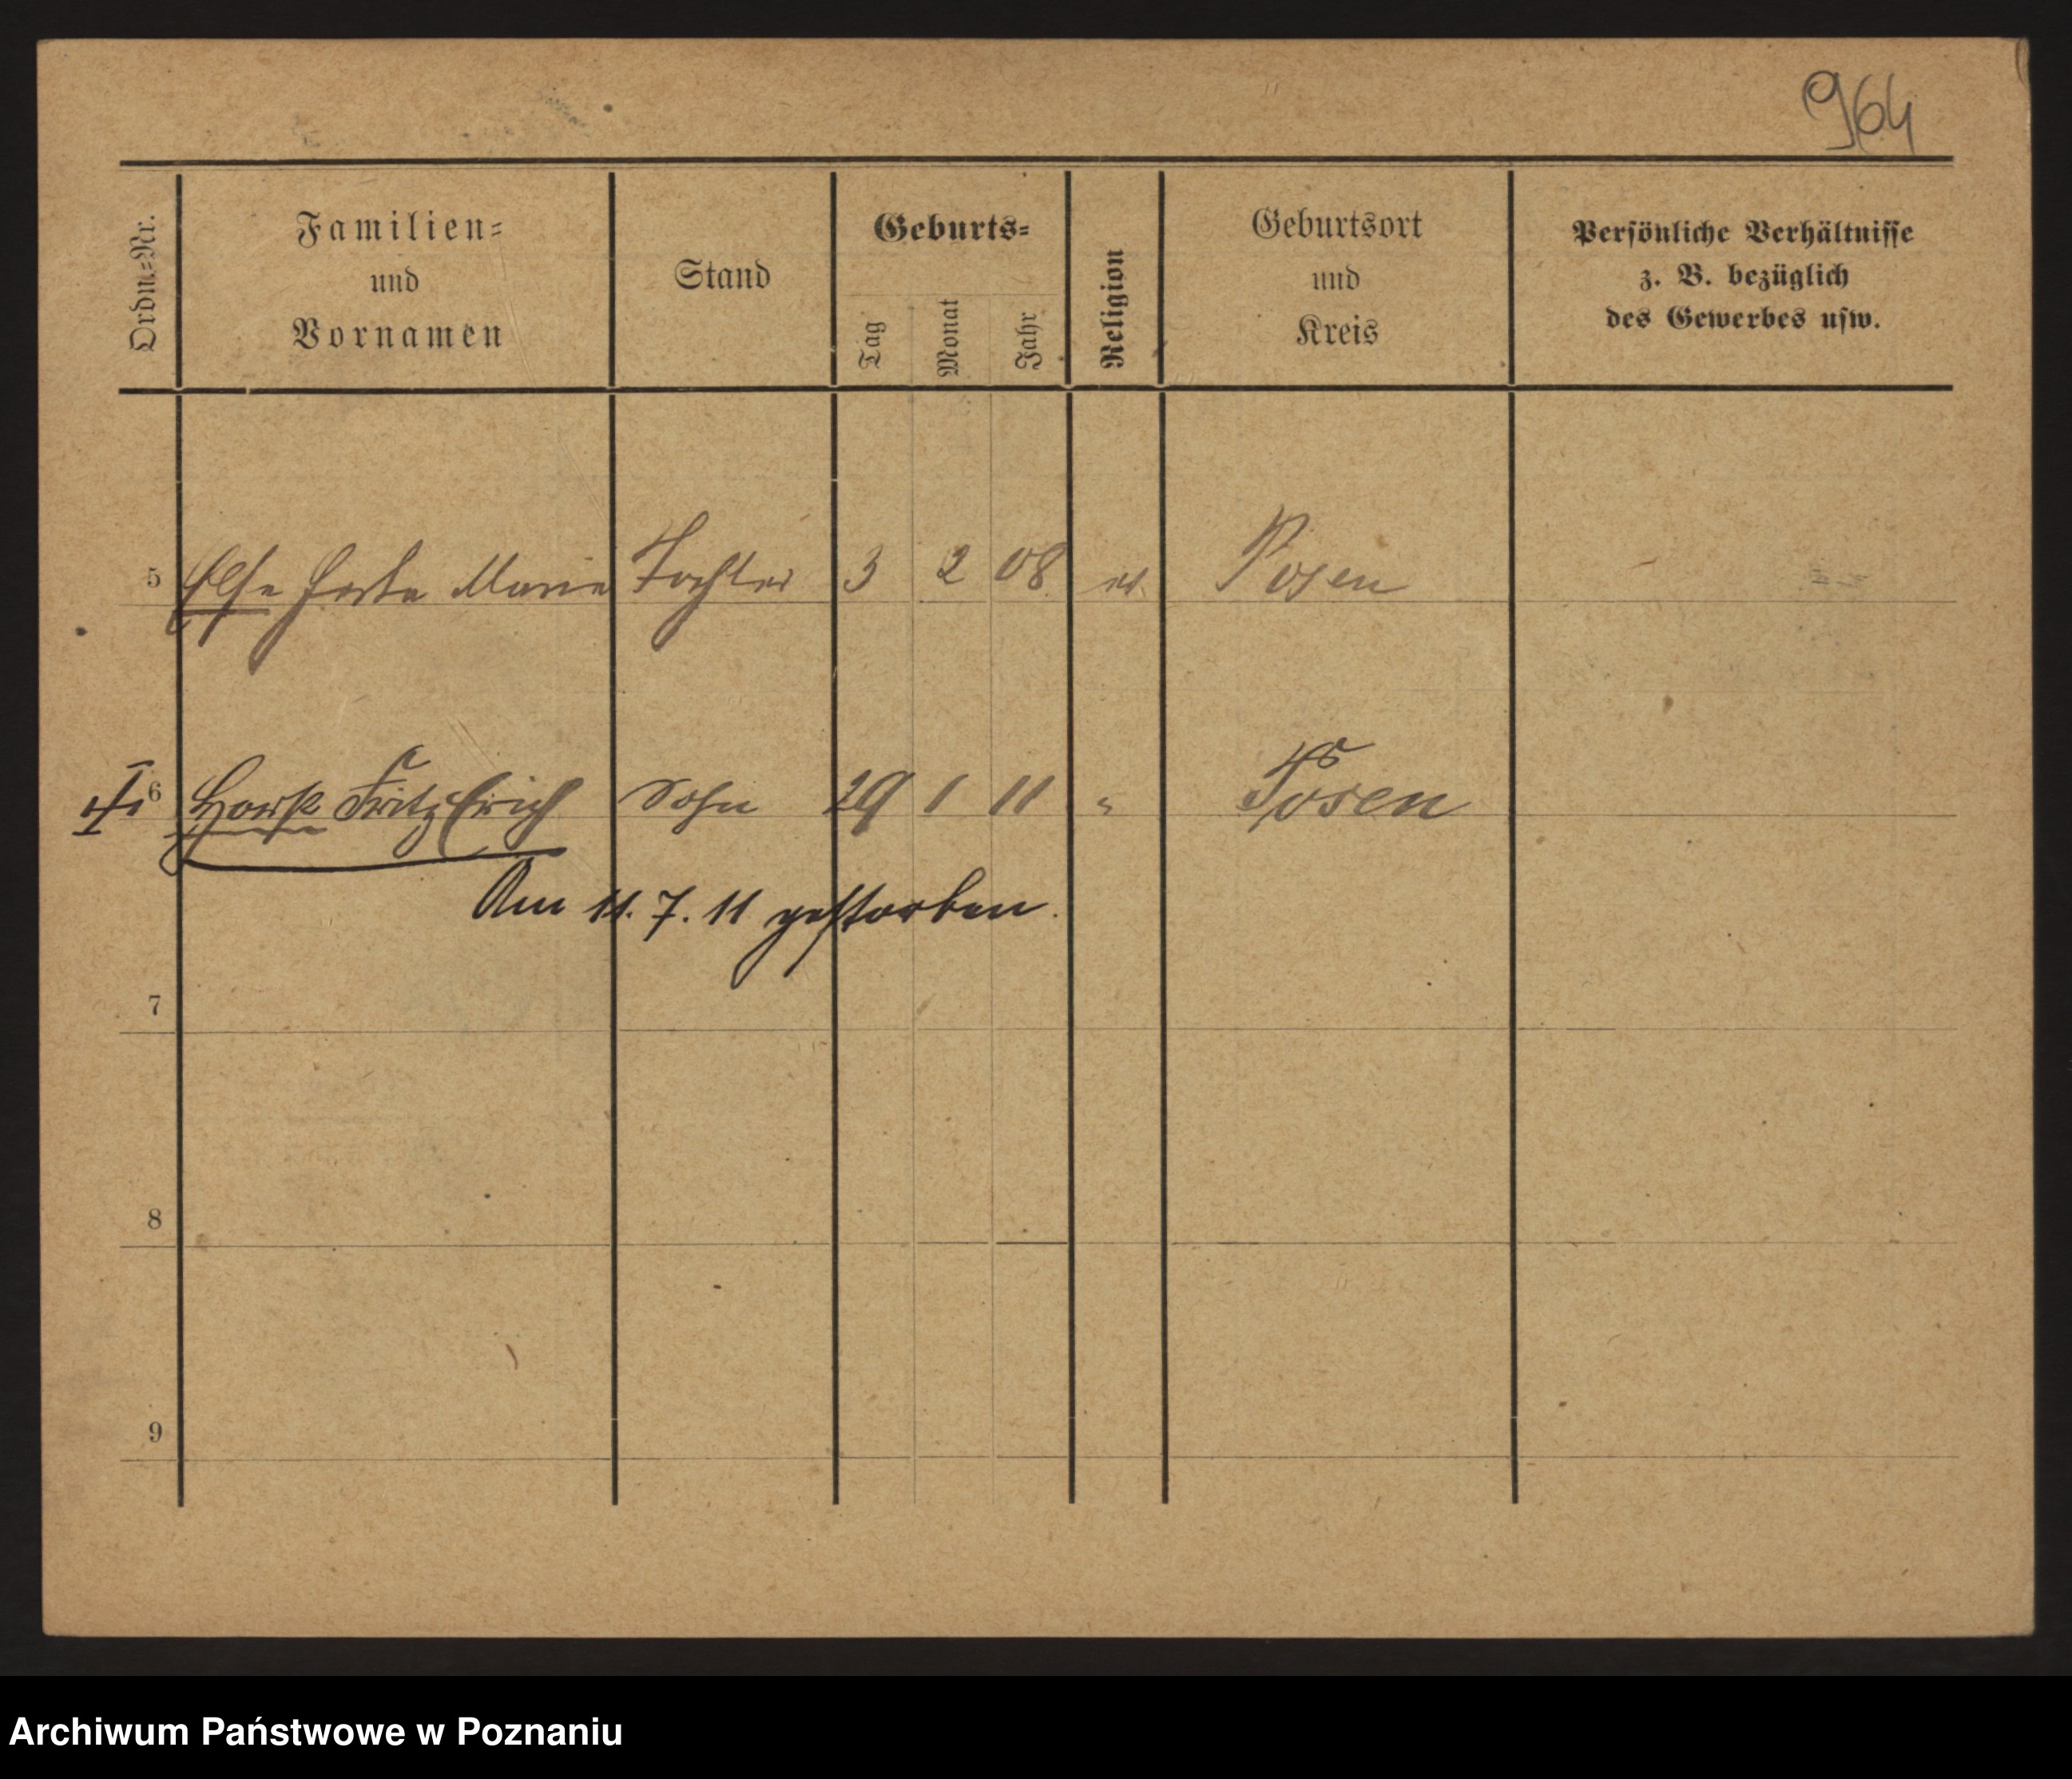 964
Ordn.-Nr.
Familien-
und
Vornamen
Stand
Geburts-
Tag
Monat
Jahr
Religion
Geburtsort
und
Kreis
Persönliche Verhältnisse
z. B. bezüglich
des Gewerbes usw.
5 Else Marie Tochter 3 2 08 ev. Posen
6 Horst Fritz Erich Sohn 29 1 11 " Posen
Am 11. 7. 11 gestorben.
7
8
9
Archiwum Państwowe w Poznaniu